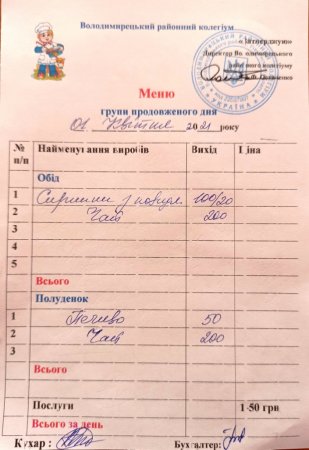 Володимирецький районний колегіум
«Затверджую»
Директор Володимирецького
районного колегіуму
Меню
групи продовженого дня
01 квітня 2021 року
№ п/п Найменування виробів Вихід Ціна
Обід
1 Сирники з повидл. 100/20
2 Чай 200
3
4
5
Всього
Полуденок
1 Печиво 50
2 Чай 200
3
Всього
Послуги 1-50 грн
Всього за день
Кухар : Бухгалтер: